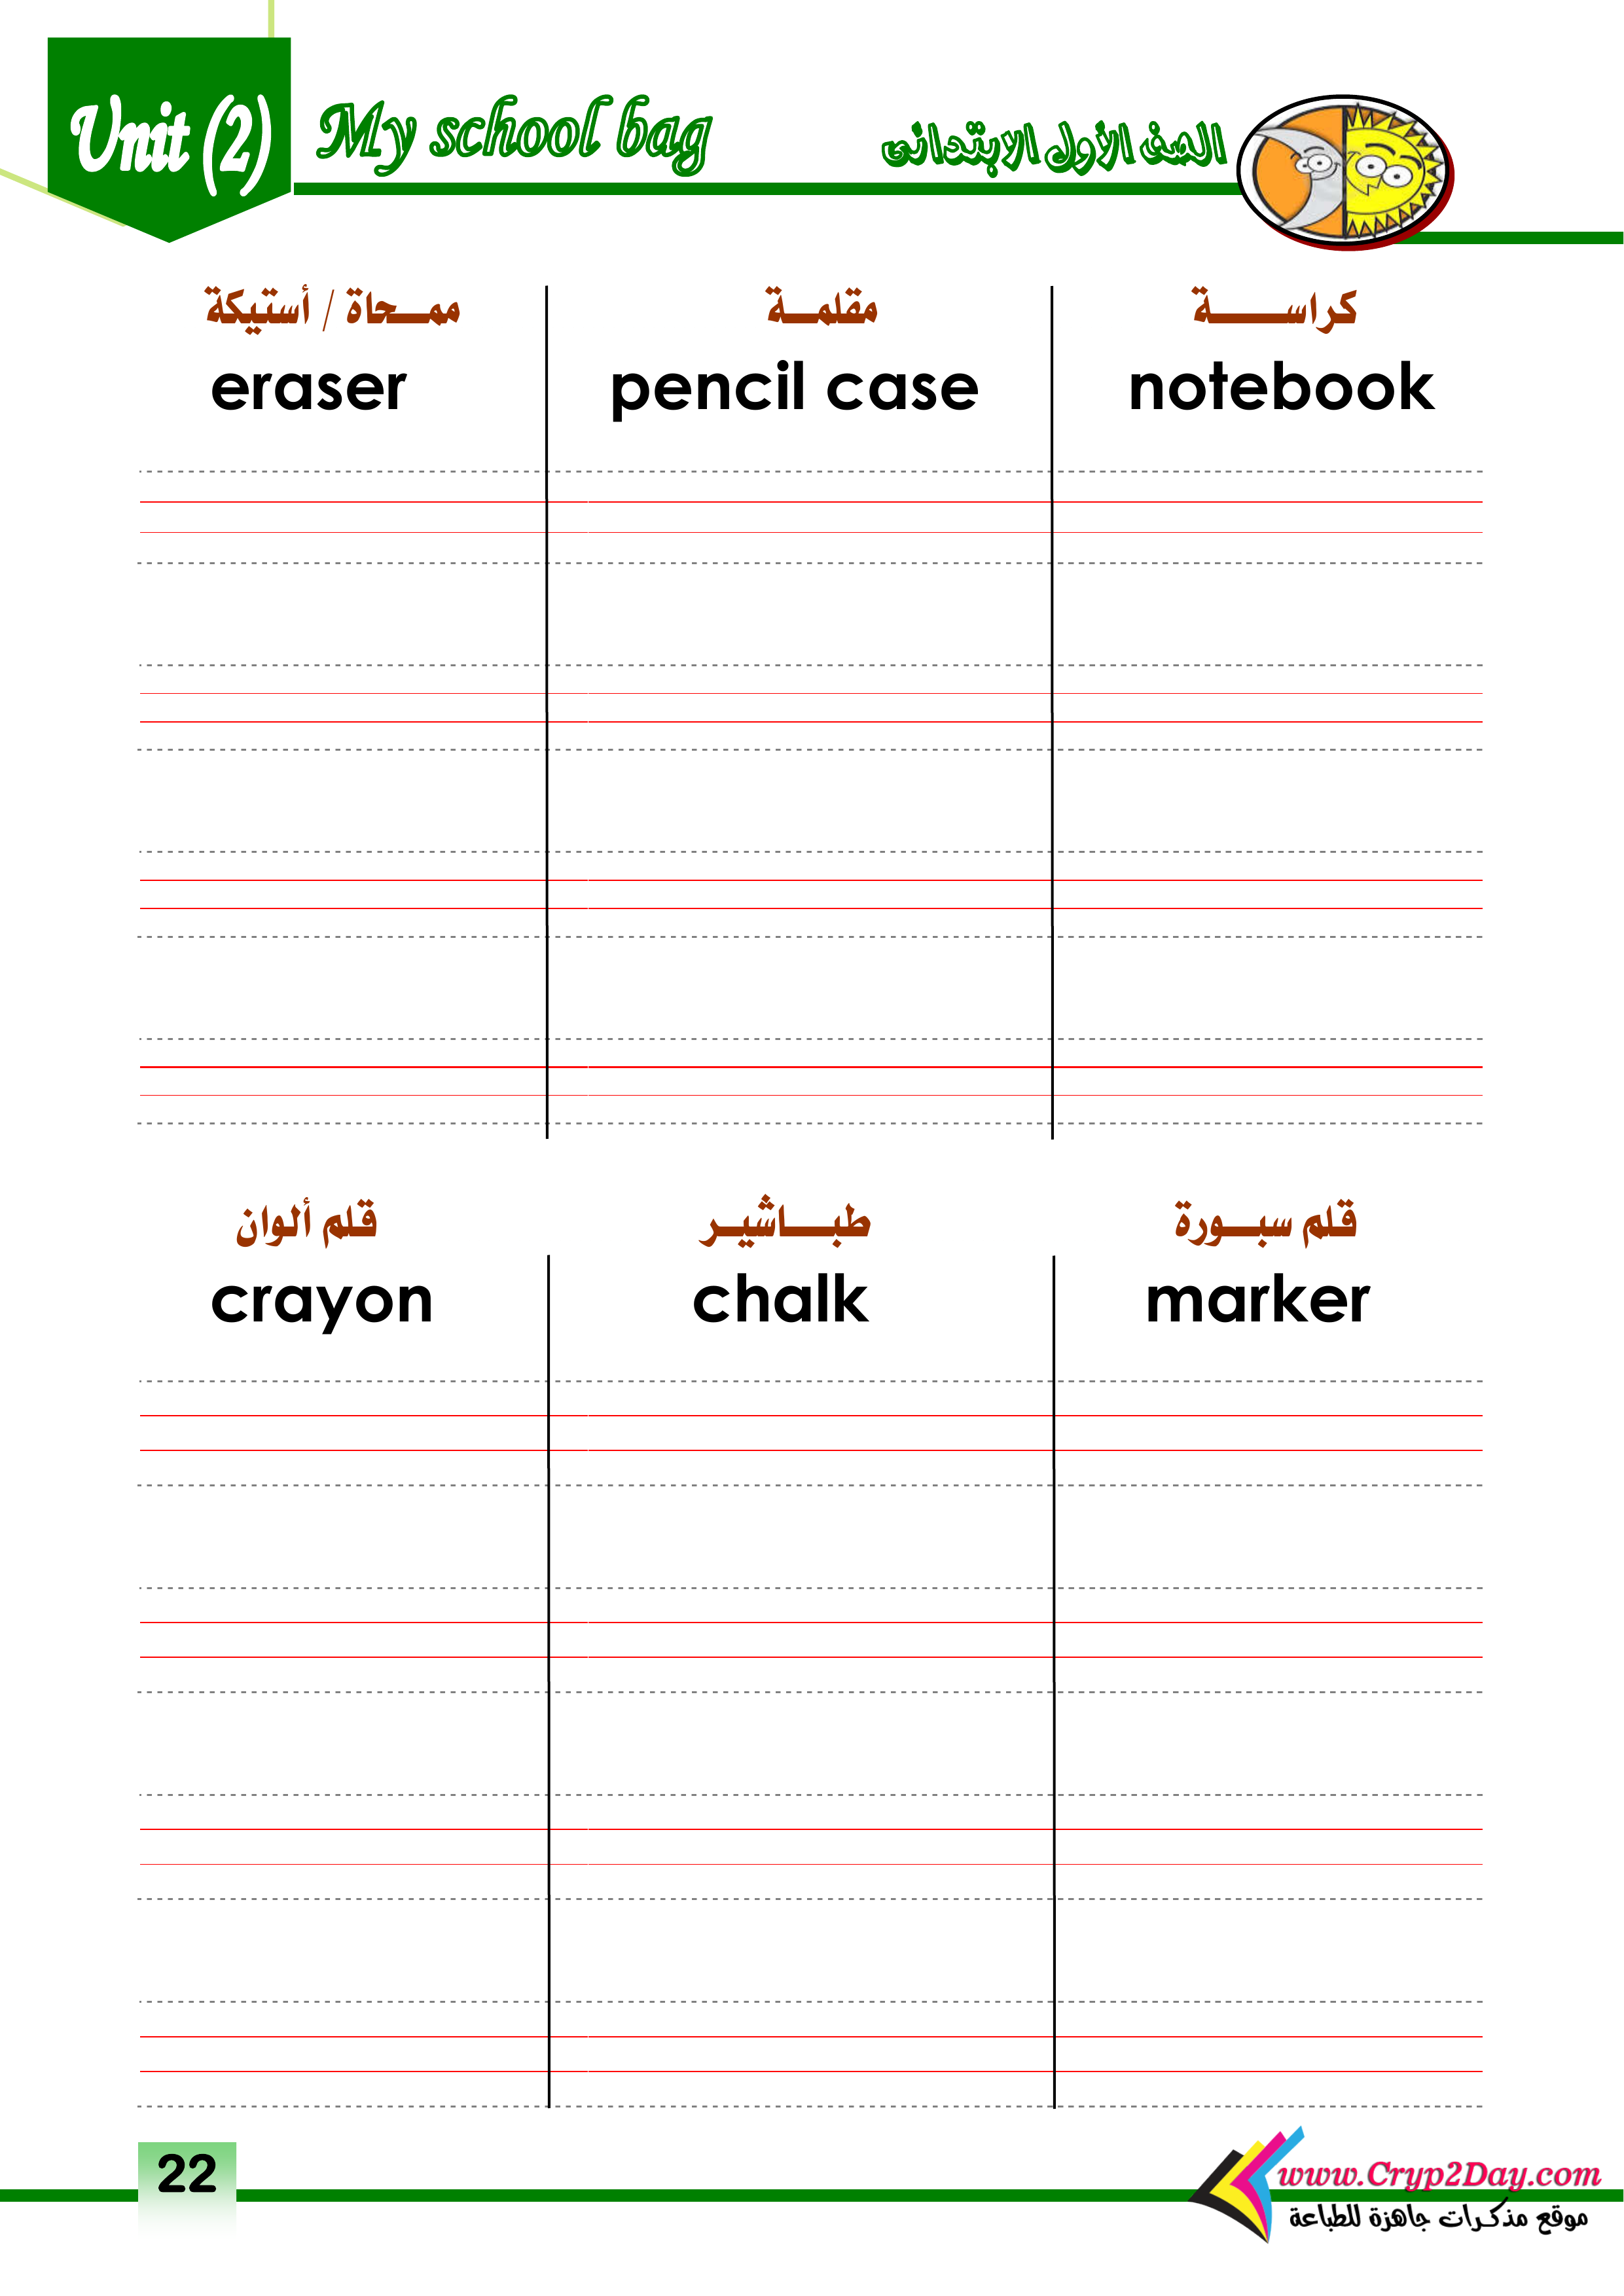 Unit (2) My school bag الصف الأول الابتدائى
ممحاة / أستيكة مقلمة كراسة
eraser pencil case notebook
قلم ألوان طباشير قلم سبورة
crayon chalk marker
22
www.Cryp2Day.com
موقع مذكرات جاهزة للطباعة